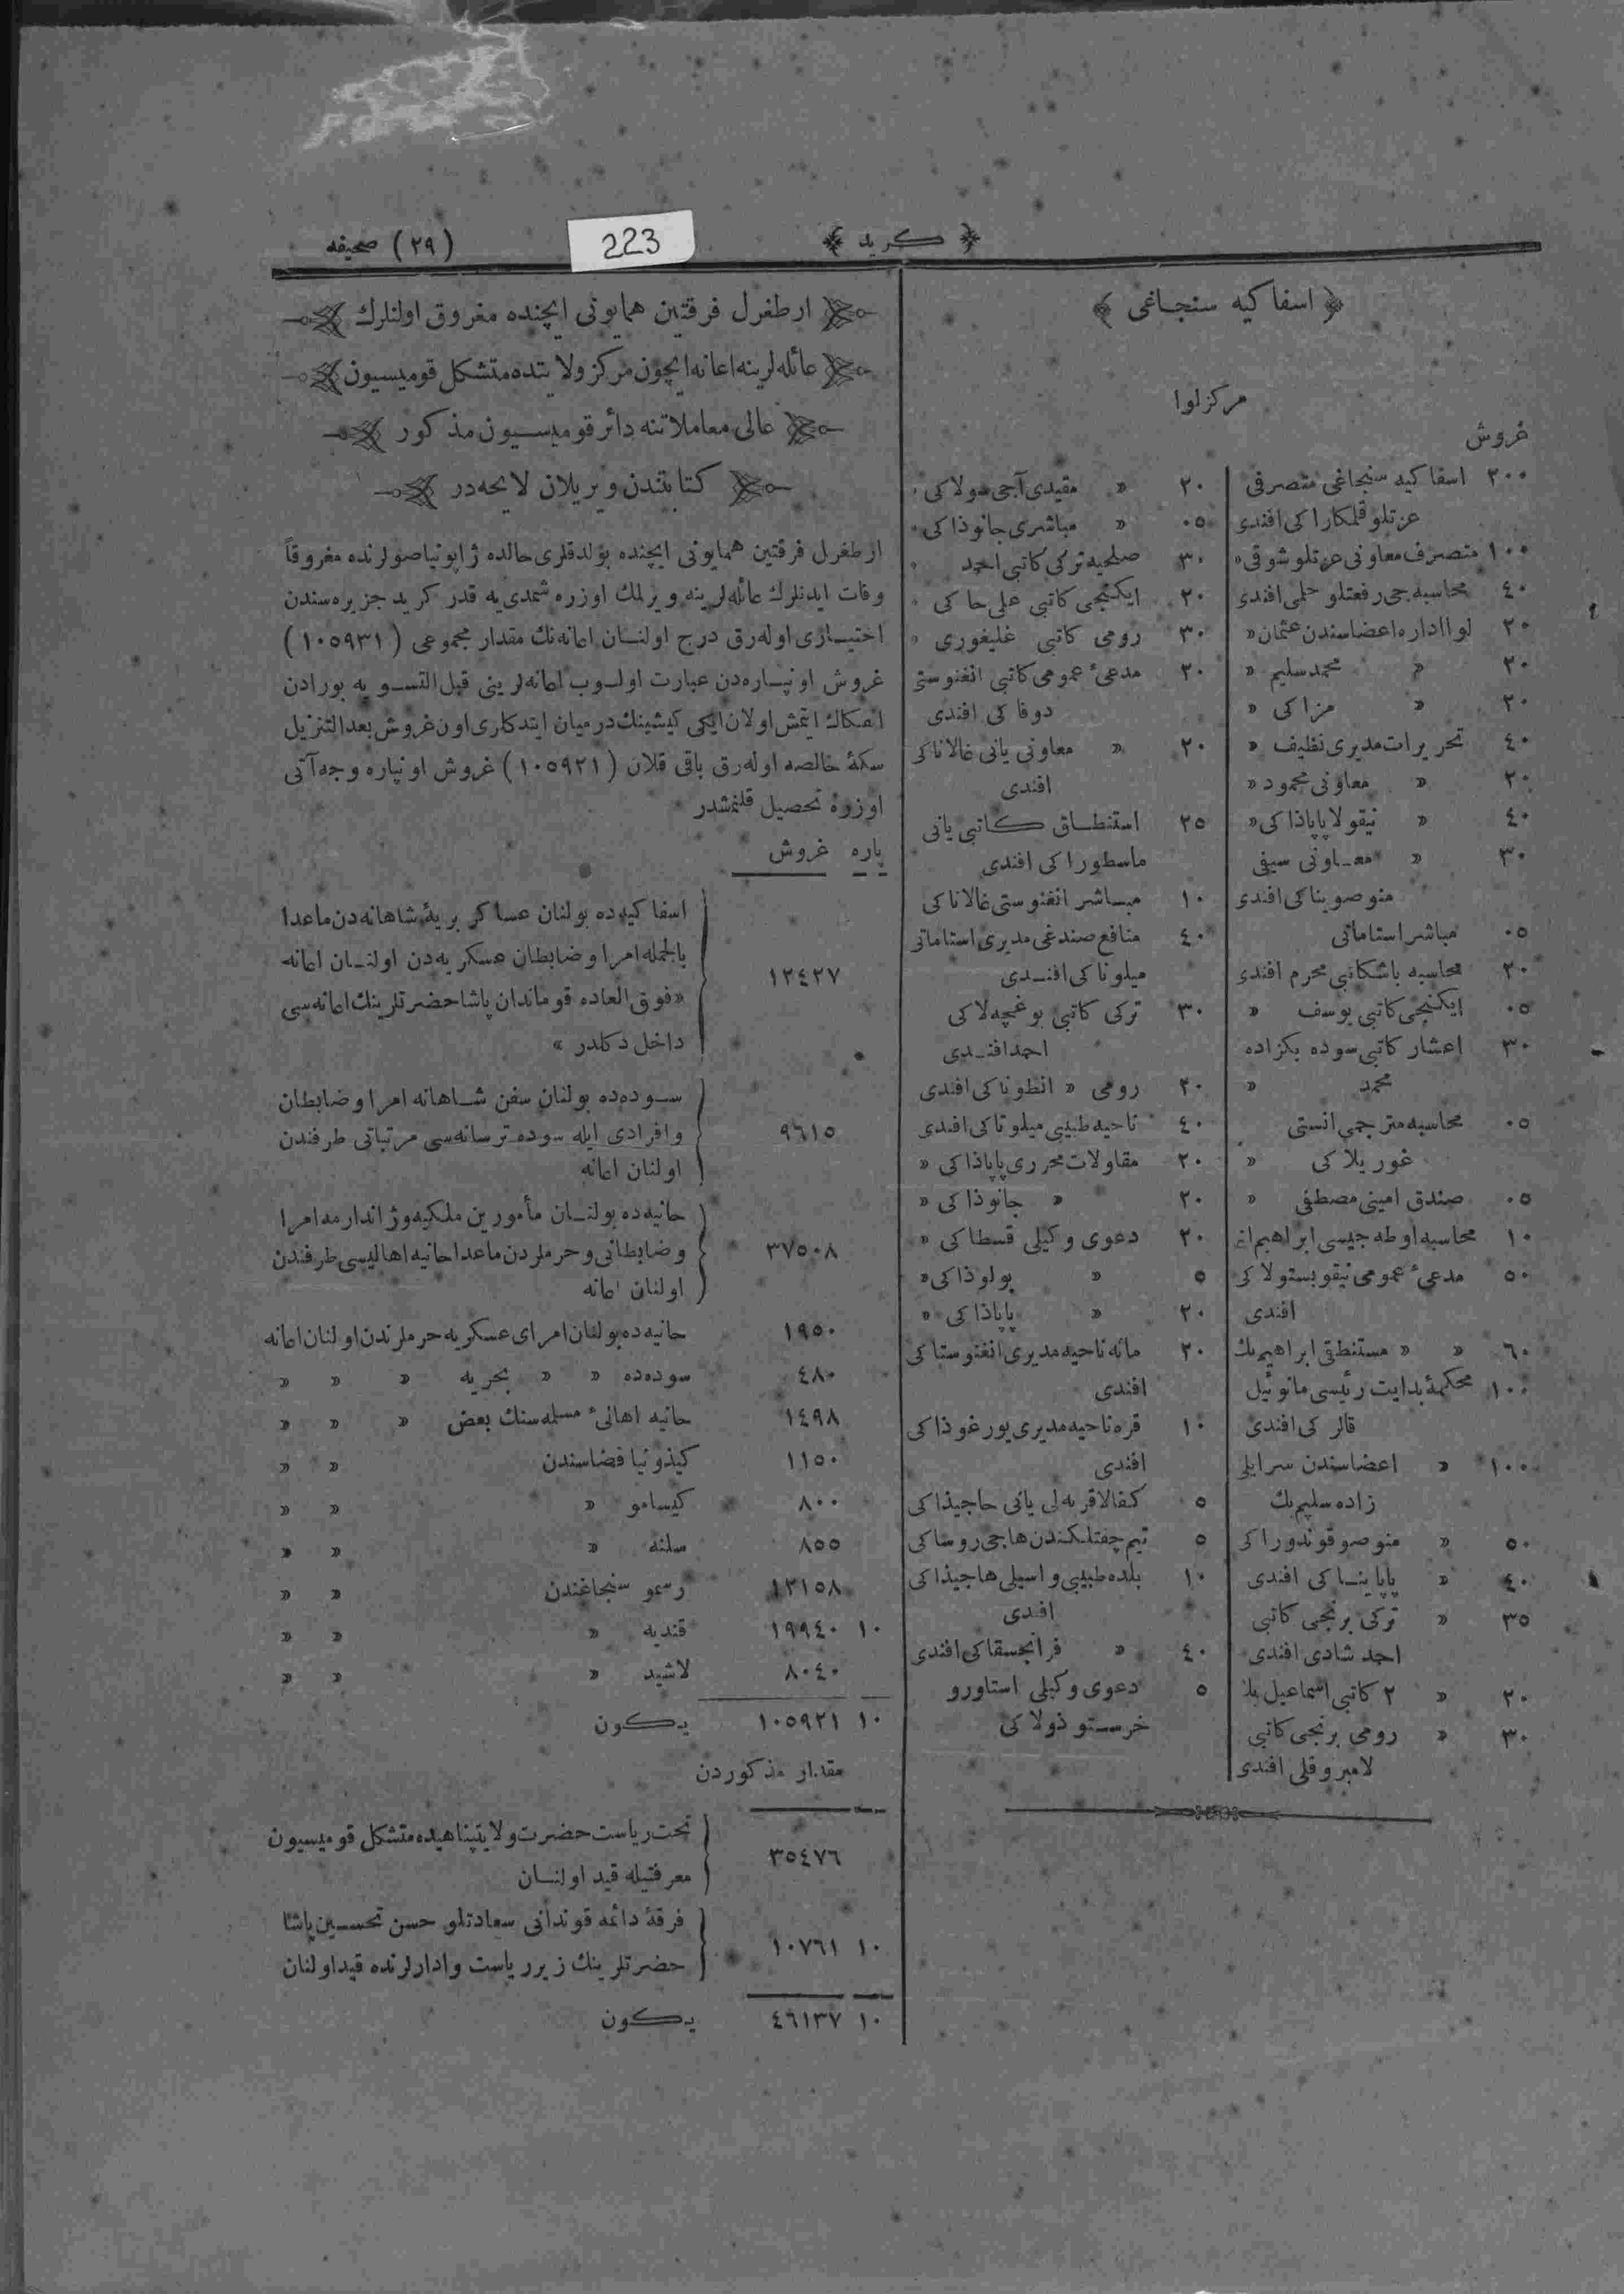 ﴿ كريد ﴾
223
صحيفه (٢٩)
﴿ اسفاكيه سنجاغى ﴾
مركز لوا
غروش
٢٠٠ اسفاكيه سنجاغى متصرفى
عزتلو قلمكاراكى افندى
١٠٠ متصرف معاونى عزتلو شوقى «
٤٠ محاسبه جى رفعتلو حلمى افندى
٢٠ لوا اداره اعضاسندن عثمان «
٢٠ « محمد سليم «
٢٠ « مزاكى «
٤٠ تحريرات مديرى نظيف «
٢٠ « معاونى محمود «
٤٠ « نيقولا پاپاذاكى «
٣٠ « معاونى سيفى
منوصويناكى افندى
٠٥ مباشر استاماتى
٢٠ محاسبه باشكاتبى محرم افندى
٠٥ ايكنجى كاتبى يوسف «
٣٠ اعشار كاتبى سوده بكزاده
محمد «
٠٥ محاسبه مترجمى انستى
غوريلاكى «
٠٥ صندق امينى مصطفى «
١٠ محاسبه اوطه جيسى ابراهيم اغا
٥٠ مدعىء عمومى نيقو بستولاكى
افندى
٦٠ « « مستنطقى ابراهيم بك
١٠٠ محكمۀ بدايت رئيسى مانوئيل
قالركى افندى
١٠٠ « اعضاسندن سرايلى
زاده سليم بك
٥٠ « منوصو قوندوراكى
٤٠ « پاپايناكى افندى
٣٥ « تركى برنجى كاتبى
احمد شادى افندى
٢٠ « ٢ كاتبى اسماعيل بك
٣٠ « رومى برنجى كاتبى
لامبروقلى افندى
٢٠ « مقيدى آجى مولاكى «
٠٥ « مباشرى جانوذاكى «
٣٠ صلحيه تركى كاتبى احمد «
٢٠ ايكنجى كاتبى على حاكى «
٣٠ رومى كاتبى غليغورى «
٢٠ مدعىء عمومى كاتبى انغنوستى
دوفاكى افندى
٢٠ « معاونى يانى غالاناكى
افندى
٢٥ استنطاق كاتبى يانى
ماسطوراكى افندى
١٠ مباشر انغنوستى غالاناكى
٤٠ منافع صندغى مديرى استاماتى
ميلوناكى افندى
٣٠ تركى كاتبى بوغچه لاكى
احمد افندى
٢٠ رومى « انطوناكى افندى
٤٠ ناحيه طبيبى ميلوناكى افندى
٢٠ مقاولات محررى پاپاذاكى «
٢٠ « جانوذاكى «
٢٠ دعوى وكيلى قسطاكى «
٥ « بولوذاكى «
٢٠ « پاپاذاكى «
٢٠ مانه ناحيه مديرى انغنوستاكى
افندى
١٠ قره ناحيه مديرى يورغوذاكى
افندى
٥ كفالا قريه لى يانى حاجيذاكى
٥ تيم چفتلكندن هاجى روساكى
١٠ بلده طبيبى واسيلى هاجيذاكى
افندى
٤٠ « فرانجسقاكى افندى
٥ دعوى وكيلى استاورو
خرستوذولاكى
ارطغرل فرقتين همايونى ايچنده مغروق اولنلرك
عائله لرينه اعانه ايچون مركز ولايتده متشكل قوميسيون
عالى معاملاتنه دائر قوميسيون مذكور
كتابتندن ويريلان لايحه در
ارطغرل فرقتين همايونى ايچنده بولدقلرى حالده ژاپونيا صولرنده مغروقاً
وفات ايدنلرك عائله لرينه ويرلمك اوزره شمدى يه قدر كريد جزيره سندن
اختيارى اوله رق درج اولنان اعانه نك مقدار مجموعى (١٠٥٩٣١)
غروش اون پاره دن عبارت اولوب اعانه لرينى قبل التسويه بورادن
انفكاك ايتمش اولان ايكى كيشينك درميان ايتدكلرى اون غروش بعد التنزيل
سكۀ خالصه اوله رق باقى قلان (١٠٥٩٢١) غروش اون پاره وجه آتى
اوزره تحصيل قلنمشدر
پاره غروش
١٢٤٢٧ اسفاكيه ده بولنان عساكر بريۀ شاهانه دن ماعدا
بالجمله امرا وضابطان عسكريه دن اولنان اعانه
« فوق العاده قوماندان پاشا حضرتلرينك اعانه سى
داخل دكلدر »
٩٦١٥ سوده ده بولنان سفن شاهانه امرا وضابطان
وافرادى ايله سوده ترسانه سى مرتباتى طرفندن
اولنان اعانه
٣٧٥٠٨ حانيه ده بولنان مأمورين ملكيه وژاندارمه امرا
وضابطانى وحرملردن ماعدا حانيه اهاليسى طرفندن
اولنان اعانه
١٩٥٠ حانيه ده بولنان امراى عسكريه حرملرندن اولنان اعانه
٤٨٠ سوده ده « « بحريه « « «
١٤٩٨ حانيه اهالىء مسلمه سنك بعض « « «
١١٥٠ كيذونيا قضاسندن « «
٨٠٠ كيسامو « « «
٨٥٥ سلنه « « «
١٢١٥٨ رسمو سنجاغندن « «
١٠ ١٩٩٤٠ قنديه « « «
٨٠٤٠ لاشيد « « «
١٠ ١٠٥٩٢١ يكون
مقدار مذكوردن
٣٥٤٧٦ تحت رياست حضرت ولايتپناهيده متشكل قوميسيون
معرفتيله قيد اولنان
١٠ ١٠٧٦١ فرقۀ دائمه قومندانى سعادتلو حسن تحسين پاشا
حضرتلرينك زير رياست وادارلرنده قيد اولنان
١٠ ٤٦١٣٧ يكون